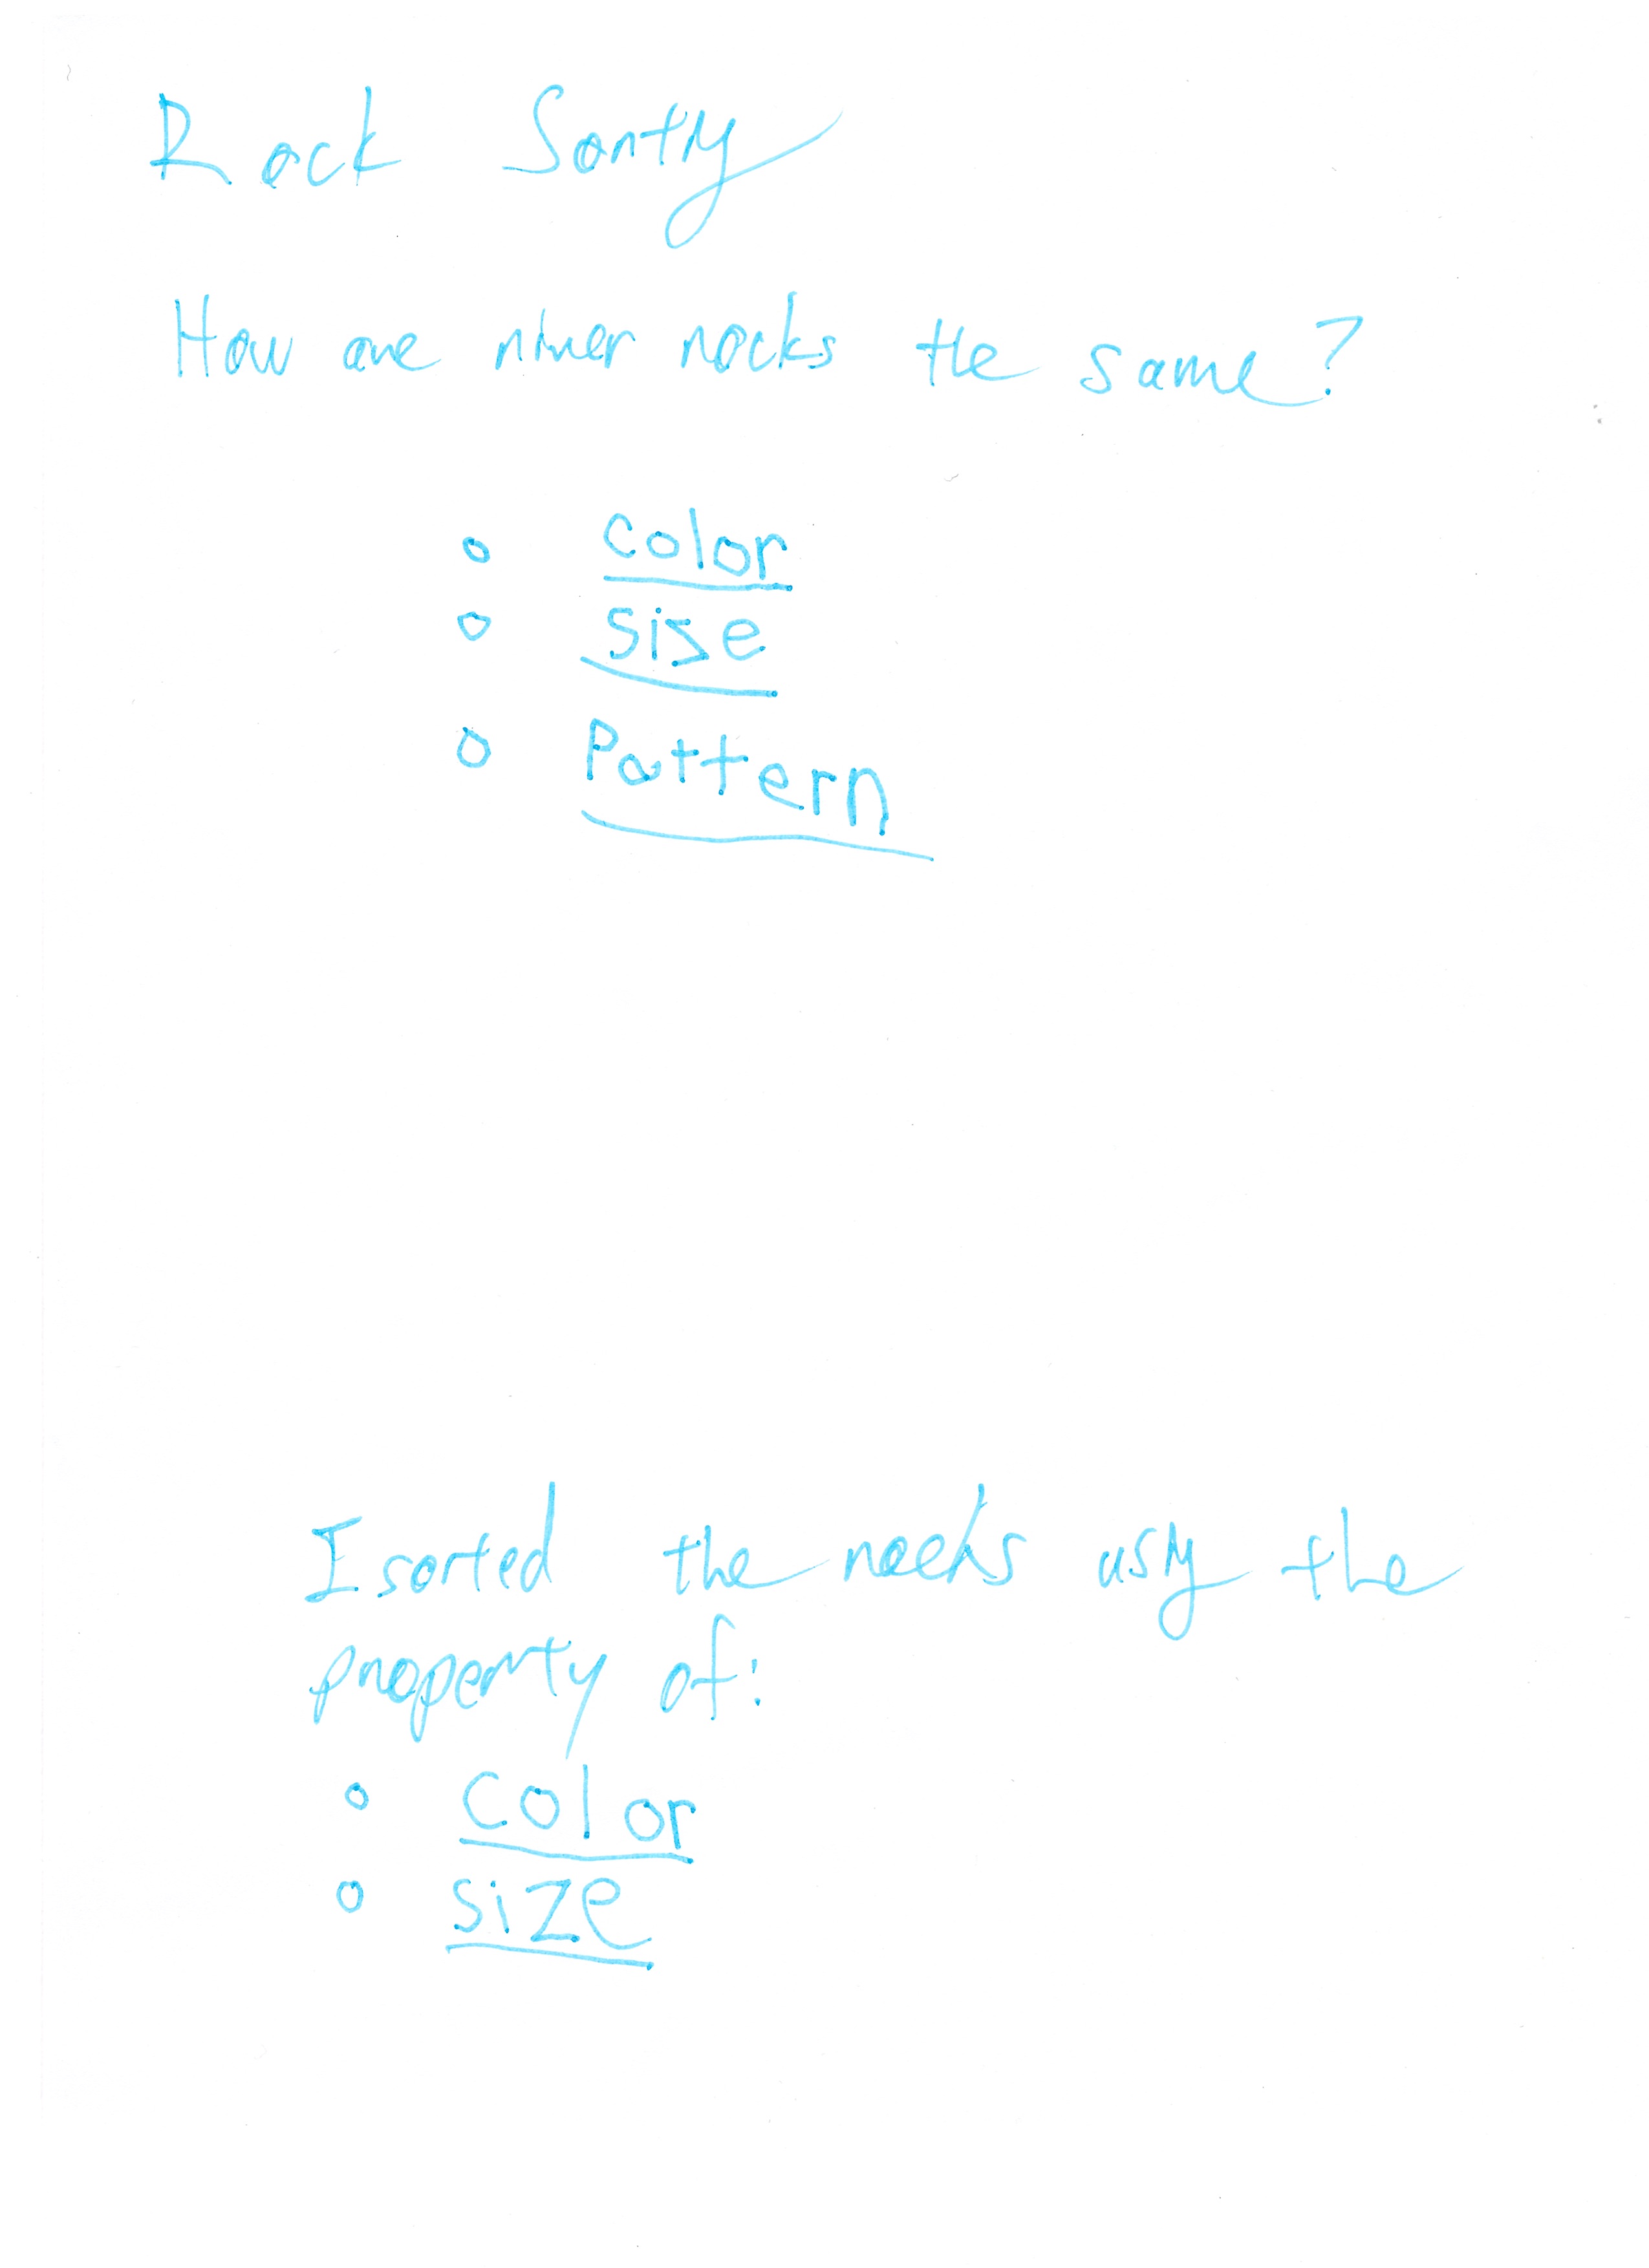 Rock Sorting
How are river rocks the same?
° color
° size
° Pattern
I sorted the rocks using the
property of:
° color
° size